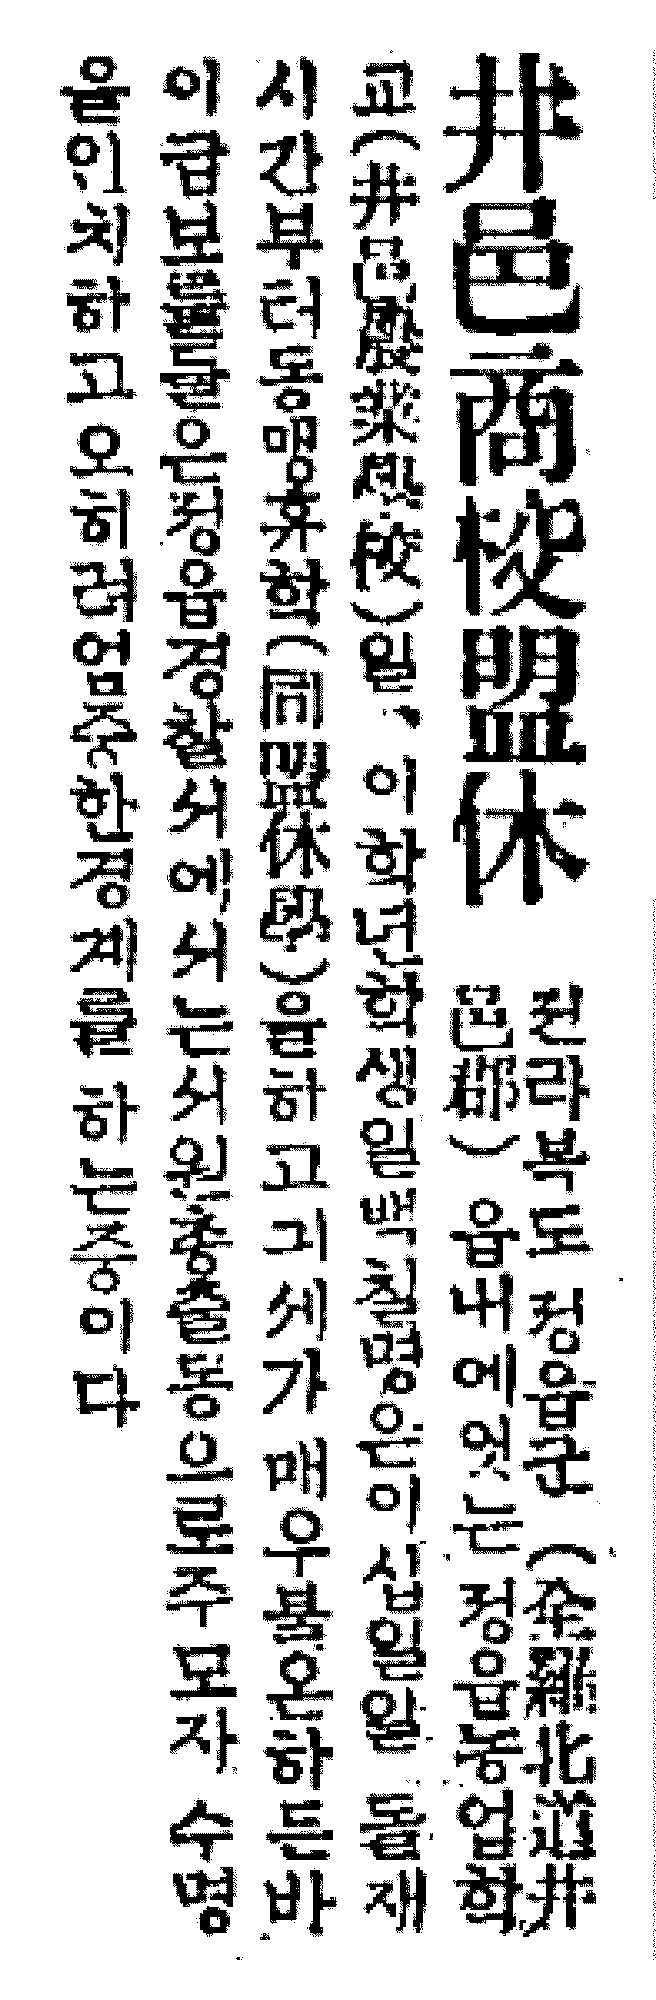 井邑商校盟休
전라북도 정읍군 (全羅北道井
邑郡) 읍내에잇는 정읍농업학
교(井邑農業學校)일, 이학년학생일백칠명은이십일일 뎨
시간부터동맹휴학(同盟休學)을하고긔세가 매우불온하든바
이급보를들은정읍경찰서에서는서원을총출동하야주모자 수명
을인치하고오히려엄중한경계를 하는중이다